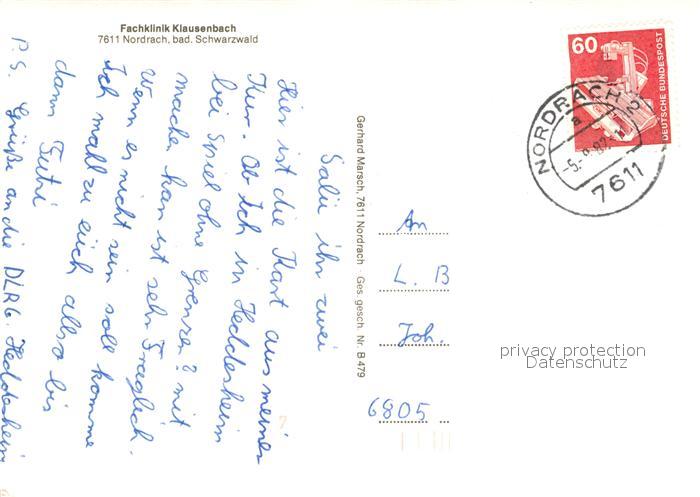 Fachklinik Klausenbach
7611 Nordrach, bad. Schwarzwald
Salü ihr zwei
Hier ist die Kart aus meiner
Kur. Ob Ich in Heddesheim
bei Spiel ohne Grenzen? mit
machen kan ist sehr Fraglich.
Wenn es nicht sein soll komme
Ich mall zu euch allso bis
dann
P.S. Grüße an die DLRG. Heddesheim
Gerhard Marsch, 7611 Nordrach · Ges. gesch. Nr. B 479
60
DEUTSCHE BUNDESPOST
NORDRACH 2
a
7611
An
L. B
Joh.
6805
privacy protection
Datenschutz